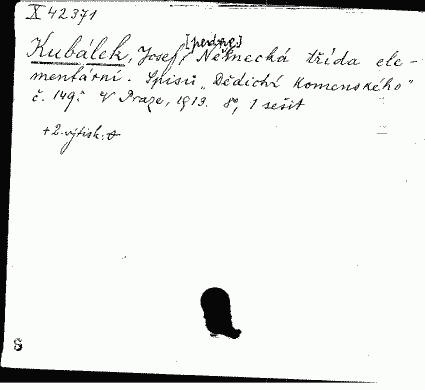 X 42371
Kubálek, Josef, Německá třída ele-
mentární. Spisů „Dědictví Komenského"
č. 149. V Praze, 1913. 8°, 1 sešit
+2. výtisk.
8